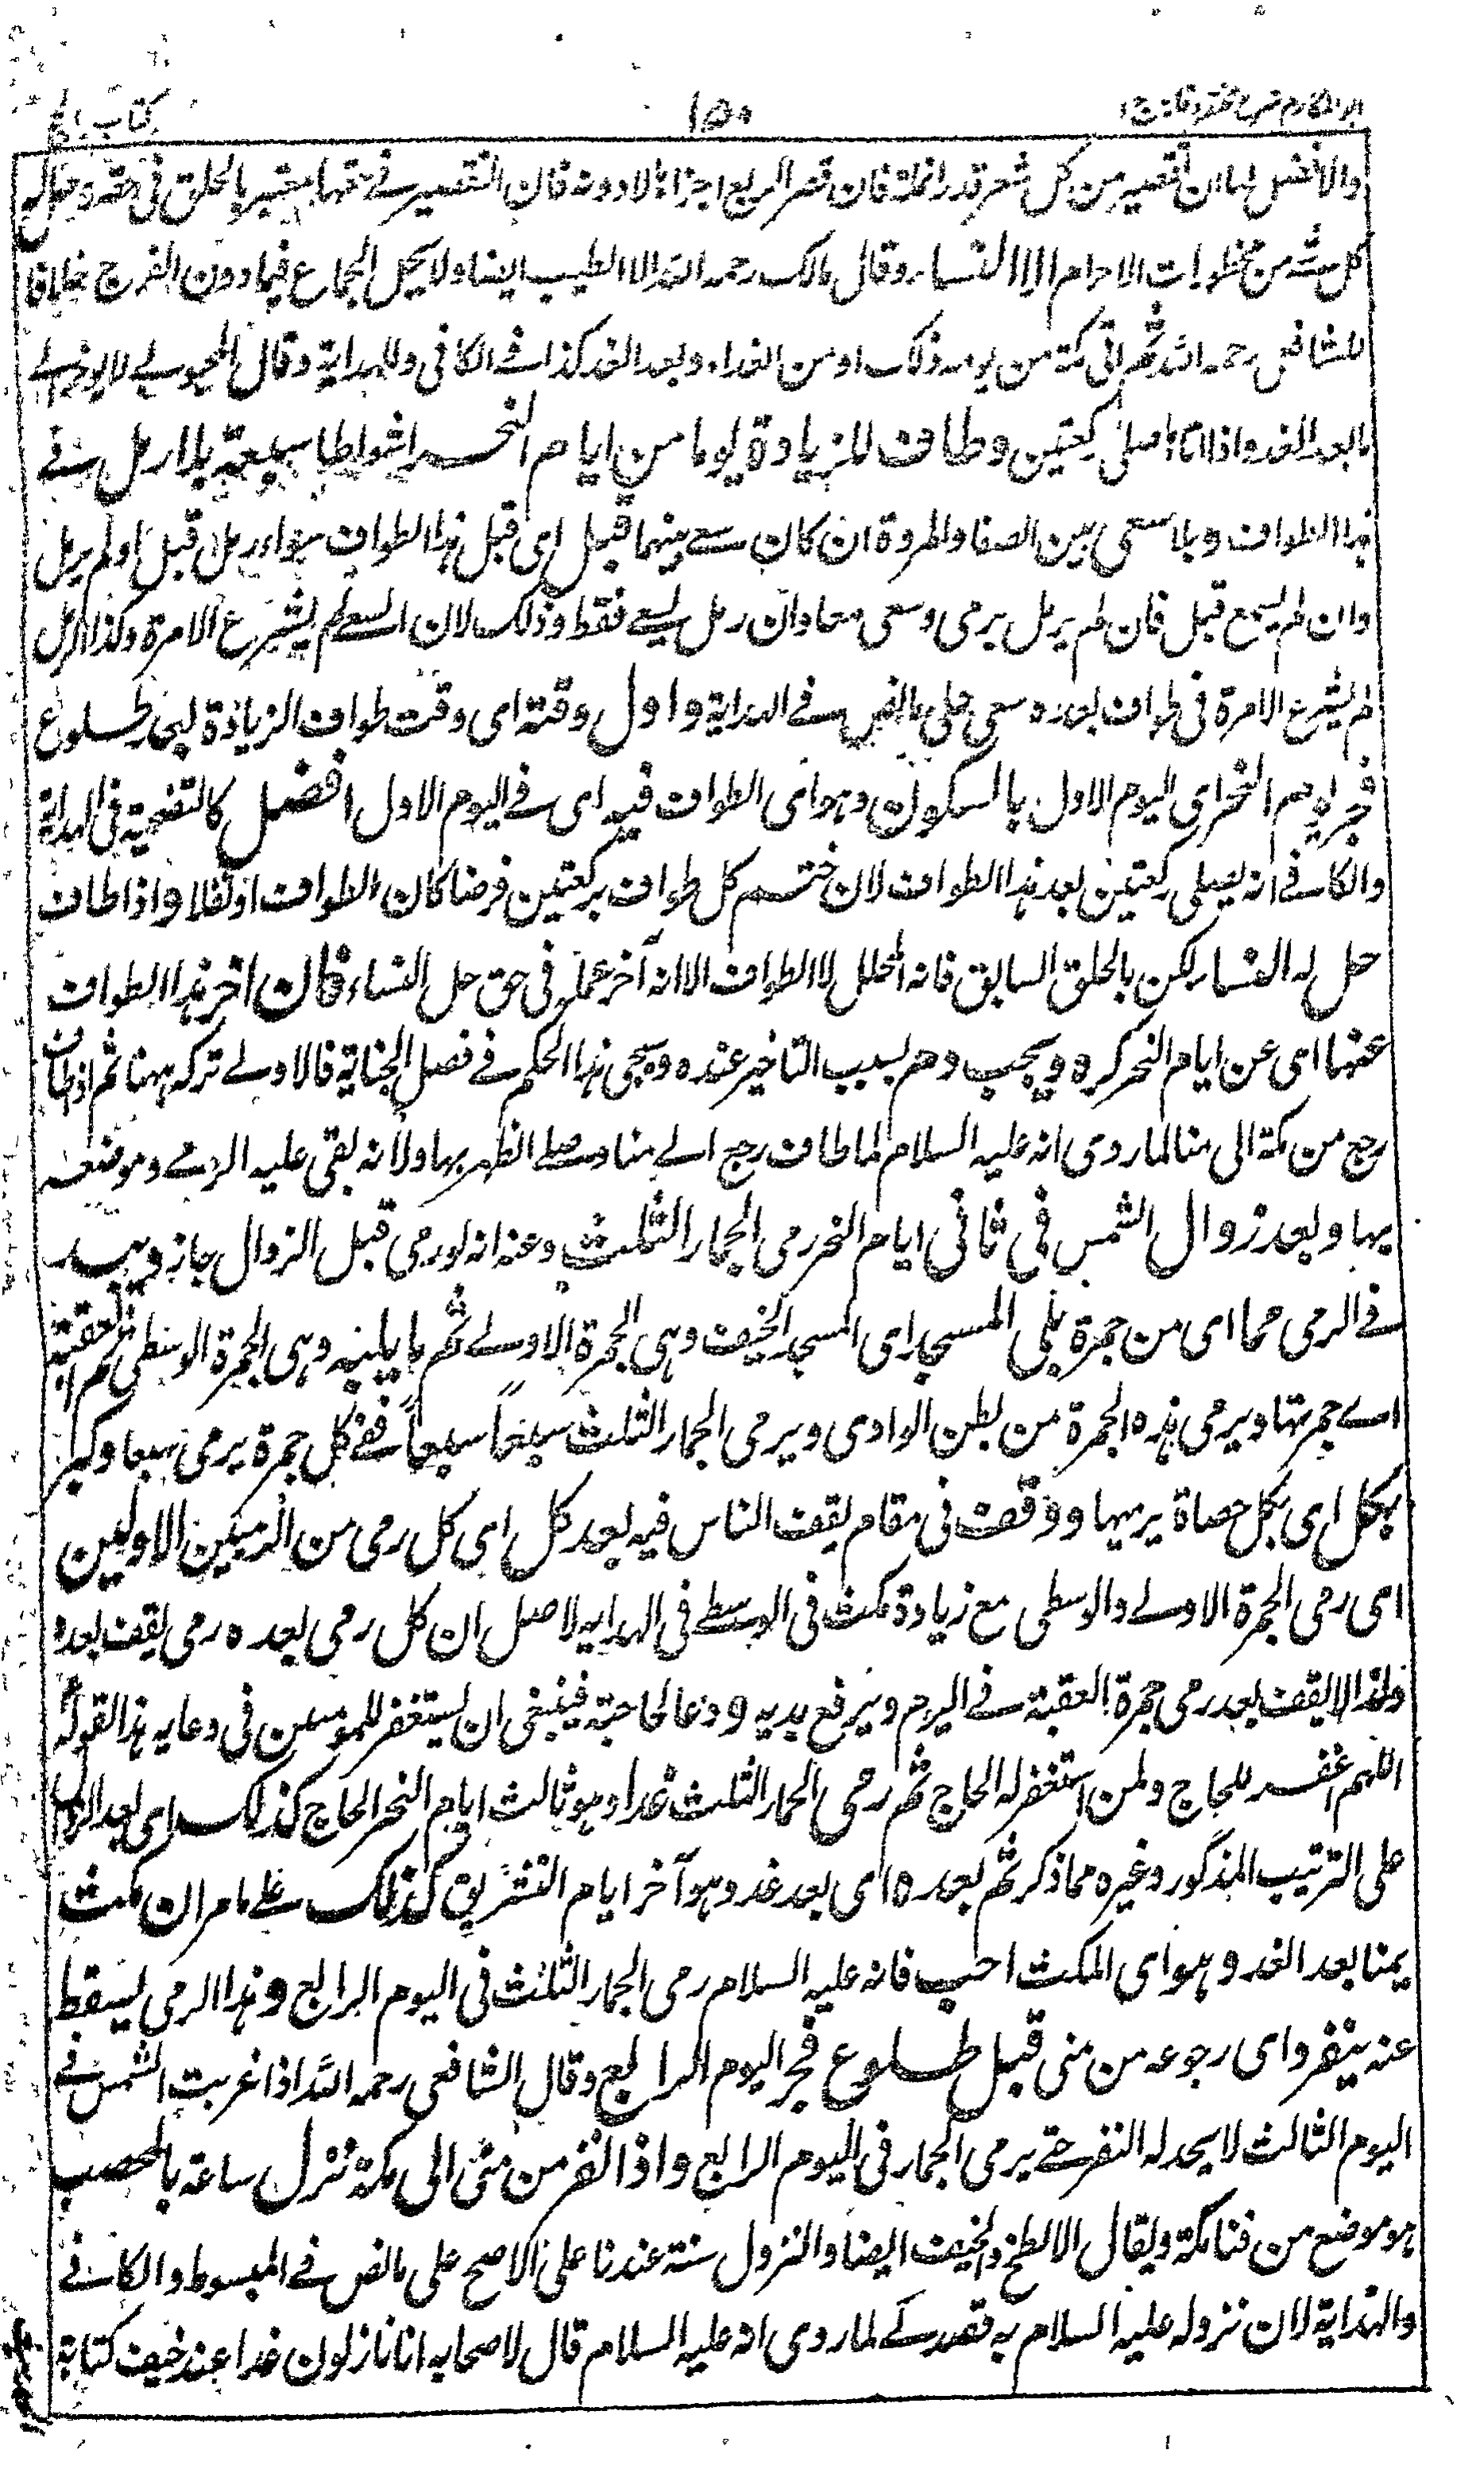 ابو المکارم شرح مختصر وقایة ج۱ ١٥٠ کتاب الحج
والافضل لها ان تقصیر من کل شعر قدر انملة فان قصر الربع اجزاها لا دونه فان التقصیر فی حقها معتبر بالحلق فی حقه وحل له
کل شئ من محظورات الاحرام الا النساء وقال مالک رحمه الله الا الطیب ایضا ولا یحل الجماع فیما دون الفرج خلافا
للشافعی رحمه الله ثم اتی مکة من یومه ذلک او من الغد او بعد الغد کذا فی الکافی والهدایة وقال المحبوبی لا یؤخر الی
ما بعد الغد واذا اتاها صلی رکعتین وطاف للزیادة یوما من ایام النحر اشواطا سبعة بلا رمل فی
هذا الطواف وبلا سعی بین الصفا والمروة ان کان سعی بینهما قبل ای قبل هذا الطواف سواء رمل قبل او لم یرمل
وان لم یسع قبل فان لم یرمل یرمی وسعی معا وان رمل یسعی فقط وذلک لان السعی لم یشرع الا مرة وکذا الرمل
لم یشرع الا مرة فی طواف بعده سعی علی ما نص فی الهدایة واول وقته ای وقت طواف الزیادة بعد طلوع
فجر یوم النحر ای الیوم الاول بالسکون وهو ای الطواف فیه ای فی الیوم الاول افضل کالتضحیة فی الهدایة
والکافی انه یصلی رکعتین بعد هذا الطواف لان ختم کل طواف برکعتین فرضا کان الطواف او نفلا واذا طاف
حل له النساء لکن بالحلق السابق فانه المحلل لا الطواف الا انه آخر عمله فی حق حل النساء فان اخر هذا الطواف
عنها ای عن ایام النحر کره ویجب دم بسبب التاخیر عنده ویجی هذا الحکم فی فصل الجنایة فالاولی ترکه ههنا ثم اذا طاف
رجع من مکة الی منا لما روی انه علیه السلام لما طاف رجع الی منا وصلی الظهر بها ولانه بقی علیه الرمی وموضعه
بها وبعد زوال الشمس فی ثانی ایام النحر رمی الجمار الثلث وعنه انه لو رمی قبل الزوال جاز ویبد
فی الرمی مما ای من جمرة یلی المسجد ای المسجد الخیف وهی الجمرة الاولی ثم ما یلیه وهی الجمرة الوسطی ثم العقبة
ای جمرتها ویرمی هذه الجمرة من بطن الوادی ویرمی الجمار الثلث سبعاً سبعاً ففی کل جمرة یرمی سبعا وکبر
بکل ای بکل حصاة یرمیها ووقف فی مقام یقف الناس فیه بعد کل ای کل رمی من الرمیین الاولین
ای رمی الجمرة الاولی والوسطی مع زیادة مکث فی الوسطی فی الهدایه لاصل ان کل رمی بعده رمی یقف بعده
ولهذا لا یقف بعد رمی جمرة العقبة فی الیوم ویرفع یدیه ودعا لحاجته فینبغی ان یستغفر للمومنین فی دعایه هذا لقوله
اللهم اغفر للحاج ولمن استغفر له الحاج ثم رمی الجمار الثلث غدا وهو ثالث ایام النحر الحاج کذلک ای بعد الزوال
علی الترتیب المذکور وغیره مما ذکر ثم بعده ای بعد غد وهو آخر ایام التشریق کذلک علی ما مر ان مکث
بمنا بعد الغد وهو ای المکث احب فانه علیه السلام رمی الجمار الثلث فی الیوم الرابع وهذا الرمی یسقط
عنه ینفر وای رجوعه من منی قبل طلوع فجر الیوم الرابع وقال الشافعی رحمه الله اذا غربت الشمس فی
الیوم الثالث لا یحد له النفر حتی یرمی الجمار فی الیوم الرابع واذا نفر من منی الی مکة نزل ساعة بالمحصب
هو موضع من فنا مکة ویقال الابطح والخیف ایضا والنزول سنة عندنا علی الاصح علی ما نص فی المبسوط والکافی
والهدایة لان نزوله علیه السلام به قصدی لما روی انه علیه السلام قال لاصحابه انا نازلون غدا عند خیف کنانة